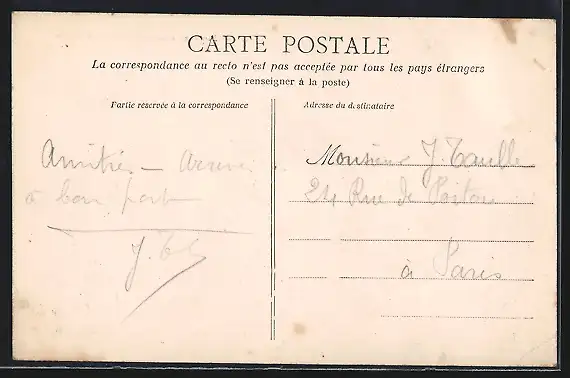 CARTE POSTALE
La correspondance au recto n'est pas acceptée par tous les pays étrangers
(Se renseigner à la poste)
Partie réservée à la correspondance
Adresse du destinataire
Amitiés —
à bon port
J. T
Monsieur J. Taulle
24 Rue de Poitou
à Paris